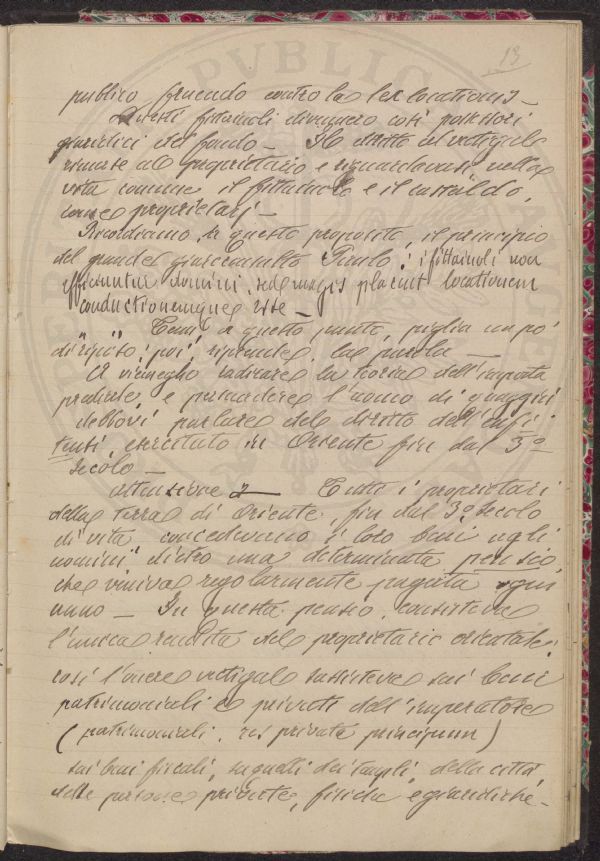 13
publico fruendo contro la lex locationis —
Questi fittaioli divennero così possessori
giuridici del fondo — Il diritto del vectigal
rimase al proprietario e riguardavasi nella
vita comune il fittaiolo e il castaldo,
come proprietarj —
Ricordiamo, a questo proposito, il principio
del grande giureconsulto Paulo: i fittaioli non
efficiuntur domini, sed magis placuit locationem
conductionemque esse —
a questo punto, piglia un po'
di riposo; poi, riprende, la parola —
la teoria dell'imposta
prediale, e persuadere l'uomo di quaggiù
debbovi parlare del diritto dell'enfi-
teusi, esercitato in Oriente fin dal 3º
secolo —
attenzione — Tutti i proprietari
della terra di Oriente, fin dal 3º secolo
di vita concedevano i loro beni agli
uomini dietro una determinata pensio,
che veniva regolarmente pagata ogni
anno — In questa pensio, consisteva
l'unica rendita del proprietario orientale;
così l'onere vectigal sussisteva sui beni
patrimoniali e privati dell'imperatore
(patrimoniali, res private principum)
sui beni fiscali, su quelli dei templi, della città,
delle persone private, fisiche e giuridiche —